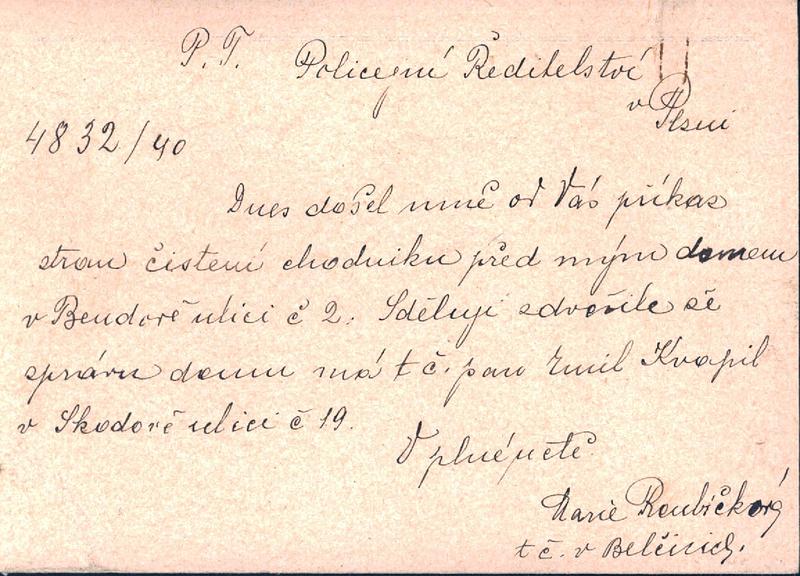 P. T. Policejní Ředitelství
v Plzni
4832/40
Dnes došel mně od Vás příkaz
stran čistení chodniku před mým domem
v Bendově ulici č 2. Sděluji zdvořile še
správu domu má t č. pan Emil Kvapil
v Skodově ulici č 19.
V plné úctě
Marie Roubíčková
t č. v Belčicích.